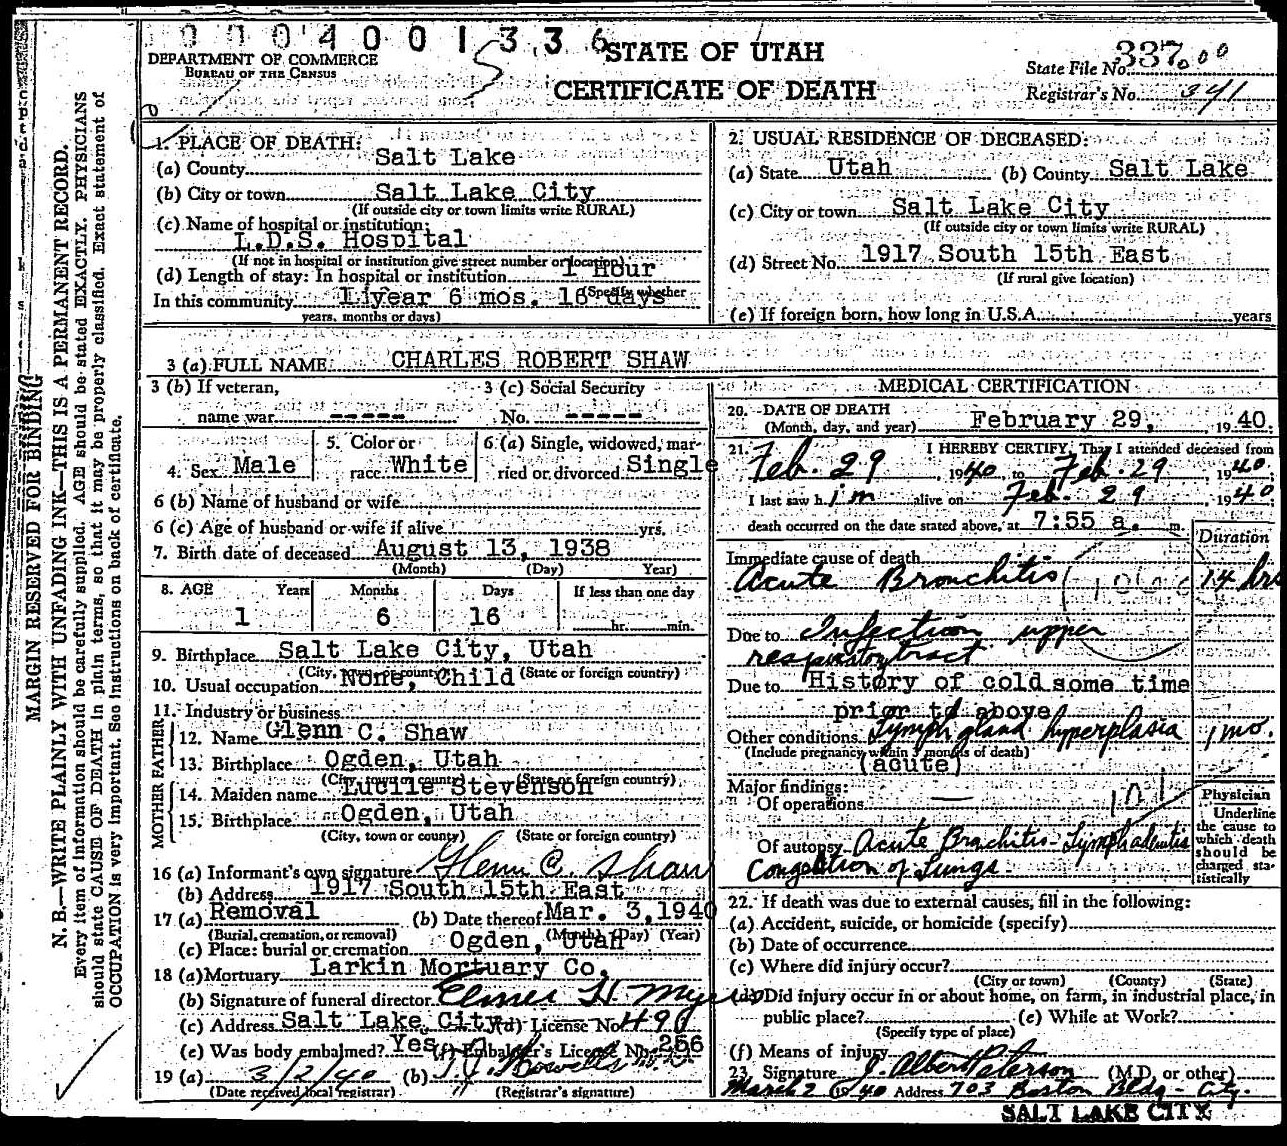 0004001336
STATE OF UTAH
CERTIFICATE OF DEATH
DEPARTMENT OF COMMERCE
BUREAU OF THE CENSUS
State File No. 337
Registrar's No. 341
MARGIN RESERVED FOR BINDING
N. B.—WRITE PLAINLY WITH UNFADING INK—THIS IS A PERMANENT RECORD.
Every item of information should be carefully supplied. AGE should be stated EXACTLY. PHYSICIANS
should state CAUSE OF DEATH in plain terms, so that it may be properly classified. Exact statement of
OCCUPATION is very important. See instructions on back of certificate.
1. PLACE OF DEATH:
(a) County Salt Lake
(b) City or town Salt Lake City
(If outside city or town limits write RURAL)
(c) Name of hospital or institution:
L.D.S. Hospital
(If not in hospital or institution give street number or location)
(d) Length of stay: In hospital or institution 1 Hour
(Specify whether
In this community 1 year 6 mos. 16 days
years, months or days)
2. USUAL RESIDENCE OF DECEASED:
(a) State Utah (b) County Salt Lake
(c) City or town Salt Lake City
(If outside city or town limits write RURAL)
(d) Street No. 1917 South 15th East
(If rural give location)
(e) If foreign born, how long in U.S.A. years
3 (a) FULL NAME CHARLES ROBERT SHAW
3 (b) If veteran,
name war -----
3 (c) Social Security
No. -----
4. Sex Male
5. Color or
race White
6 (a) Single, widowed, mar-
ried or divorced Single
6 (b) Name of husband or wife
6 (c) Age of husband or wife if alive yrs.
7. Birth date of deceased August 13, 1938
(Month) (Day) Year)
8. AGE Years Months Days If less than one day
1 6 16 hr. min.
9. Birthplace Salt Lake City, Utah
(City, town or county) (State or foreign country)
10. Usual occupation None, Child
11. Industry or business
FATHER
12. Name Glenn C. Shaw
13. Birthplace Ogden, Utah
(City, town or county) (State or foreign country)
MOTHER
14. Maiden name Lucile Stevenson
15. Birthplace Ogden, Utah
(City, town or county) (State or foreign country)
16 (a) Informant's own signature Glenn C. Shaw
(b) Address 1917 South 15th East
17 (a) Removal (b) Date thereof Mar. 3, 1940
(Burial, cremation, or removal) (Month) (Day) (Year)
(c) Place: burial or cremation Ogden, Utah
18 (a) Mortuary Larkin Mortuary Co.
(b) Signature of funeral director Elmer H. Myers
(c) Address Salt Lake City (d) License No. 490
(e) Was body embalmed? Yes (f) Embalmer's License No. 256
19 (a) 3/2/40 (b)
(Date received local registrar) (Registrar's signature)
MEDICAL CERTIFICATION
20. DATE OF DEATH
(Month, day, and year) February 29, 1940.
21. I HEREBY CERTIFY, That I attended deceased from
Feb. 29 1940 to Feb. 29 1940.
I last saw him alive on Feb. 29 1940
death occurred on the date stated above, at 7:55 a. m.
Duration
Immediate cause of death
Acute Bronchitis 14 hrs
Due to Infection upper
respiratory tract
Due to History of cold some time
prior to above
Other conditions Lymph gland hyperplasia 1 mo.
(Include pregnancy within 3 months of death)
(acute)
Major findings:
Of operations —
Of autopsy Acute Brochitis - Lymphadenitis
Congestion of Lungs.
Physician
Underline
the cause to
which death
should be
charged sta-
tistically
22. If death was due to external causes, fill in the following:
(a) Accident, suicide, or homicide (specify)
(b) Date of occurrence
(c) Where did injury occur?
(City or town) (County) (State)
(d) Did injury occur in or about home, on farm, in industrial place, in
public place? (e) While at Work?
(Specify type of place)
(f) Means of injury
23. Signature J. Albert Peterson (M.D. or other)
March 2 1940 Address 703 Boston Bldg - City.
SALT LAKE CITY